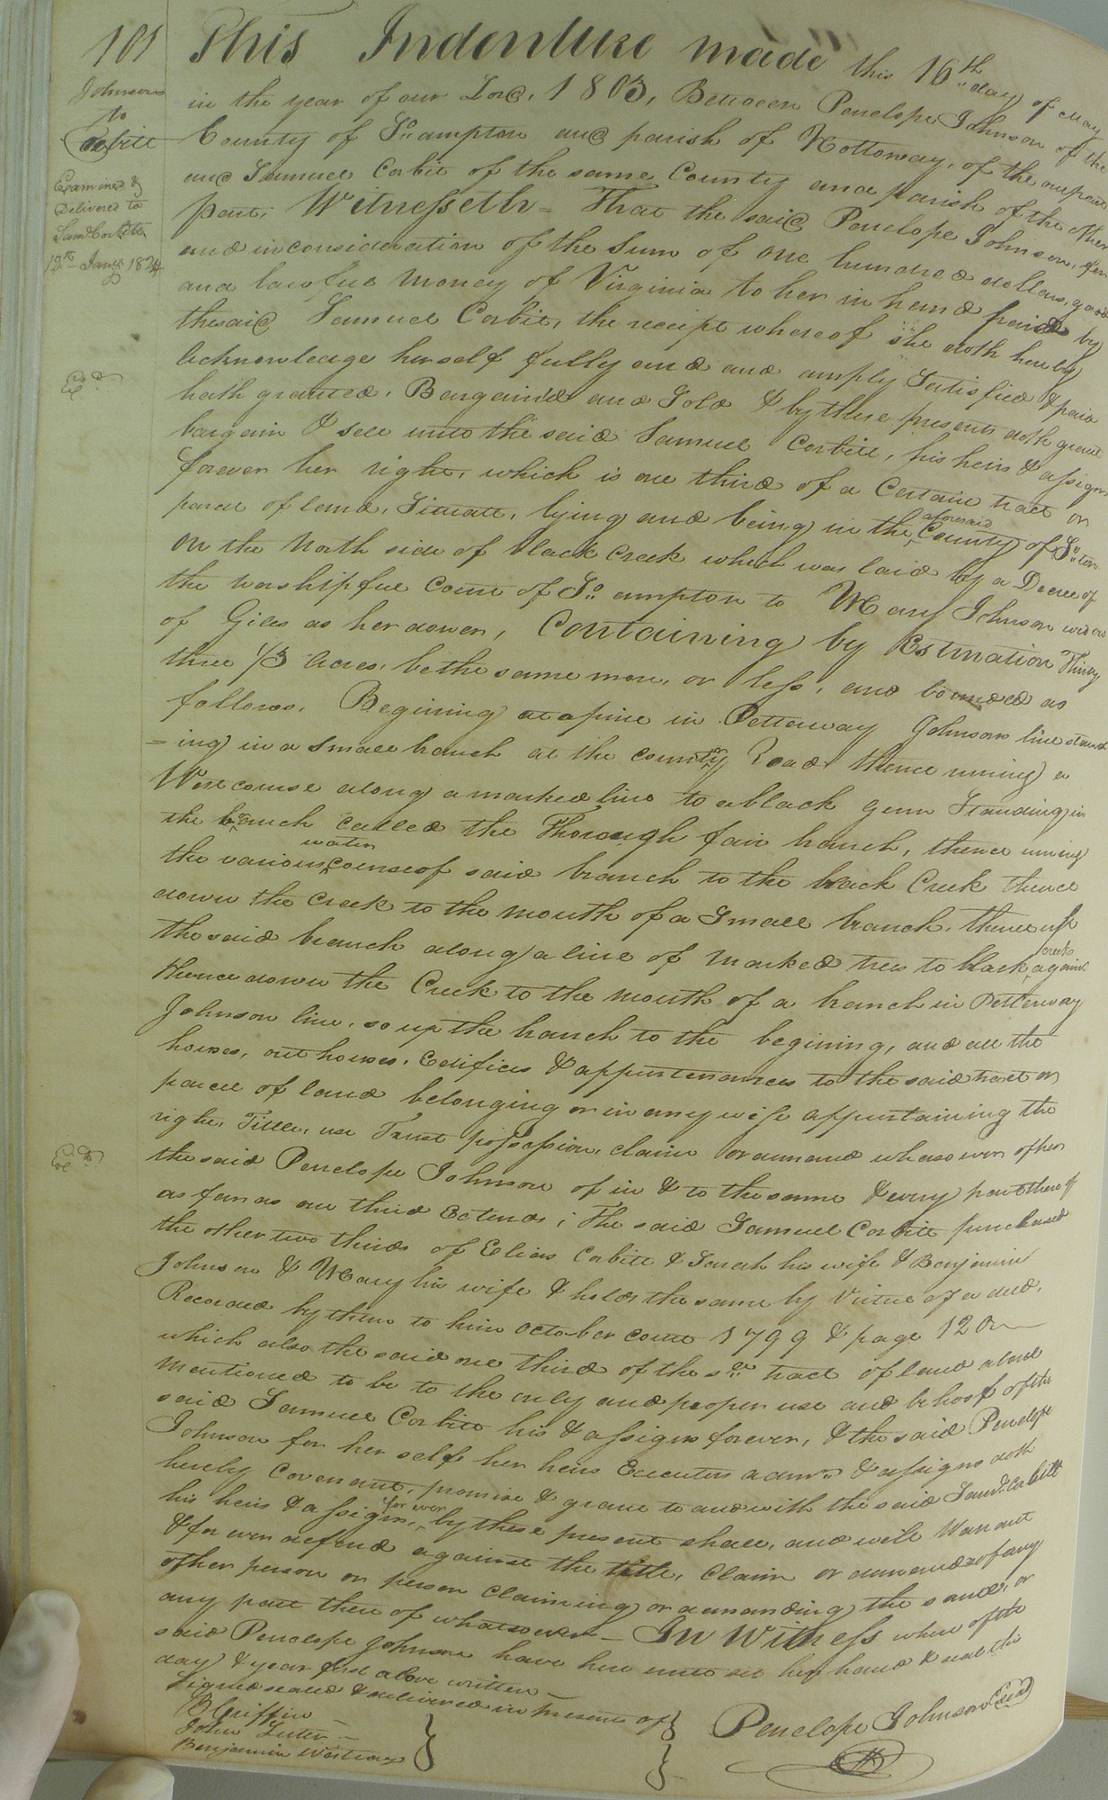 101
Johnson
to
Corbitt
Examined &
Delivered to
Saml Corbitt
12th Jany 1824
This Indenture made this 16th day of May
in the year of our Lord, 1803, Between Penelope Johnson of the
County of So.ampton and parish of Nottoway, of the one part
and Samuel Corbit of the same County and parish of the other
part; Witnesseth - That the said Penelope Johnson, for
and in consideration of the Sum of one hundred dollars, good
and lawful money of Virginia to her in hand paid by
the said Samuel Corbit, the receipt whereof she doth hereby
acknowledge herself fully and and amply Satisfied & paid
hath granted, Bargain'd and Sold & by these presents doth grant
bargain & sell unto the said Samuel Corbitt, his heirs & assigns
forever her right, which is one third of a Certain tract or
parcel of land, Situate, lying and being in the aforesaid County of So.ton
On the North side of black Creek which was laid by a Decree of
the worshipful Court of So.ampton to Mary Johnson widow
of Giles as her dower, Containing by Estmation Thirty
three 1/3 acres, be the same more, or less, and bounded as
follows. Begining at a pine in Petterway Johnsons line stand
=ing in a Small branch at the county Road thence runing a
West course along a marked line to a black gum Standing in
the branch called the Thorough fair branch, thence runing
the various water course of said branch to the black Creek thence
down the Creek to the mouth of a Small branch, thence up
the said branch along a line of marked trees to black creek again
thence down the Creek to the mouth of a branch in Petterway
Johnson line, so up the branch to the begining, and all the
houses, out houses, Edifices & appurtenances to the said tract or
parcel of land belonging or in any wise appurtaining the
right, Title, use Trust possession, claim or demand whasoever of her
the said Penelope Johnson of in & to the same & every part thereof
as far as one third Extends; The said Samuel Corbitt purchased
the other two thirds of Elias Corbitt & Sarah his wife & Benjamin
Johnson & Mary his wife & holds the same by Virtue of a deed,
Recorded by them to him October Court 1799 & page 120
which also the said one third of the sd tract of land above
mentioned to be to the only and proper use and behoof of the
said Samuel Corbitt his & assigns forever, & the said Penelope
Johnson for her self her heirs Executors admrs & assigns doth
hereby Covenant, promise & grant to and with the said Saml. Corbitt
his heirs & assigns, for ever by these present shall, and will Warrant
& for ever defend against the title, Claim or demands of any
other person or person claiming or demanding the same, or
any part there of whatsoever - In Witness where of the
said Penelope Johnson have here unto set her hand & seal the
day & year first above written -
Signed sealed & delivered in present of
B Griffin
John Luter
Benjamin Westray
Penelope Johnson Seal